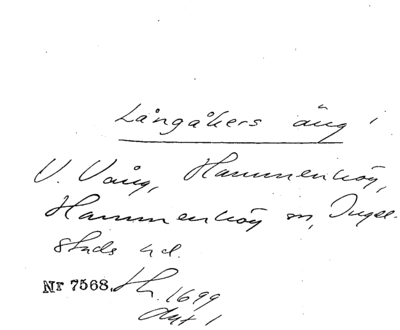 Långåkers äng
V. Vång, Hammenhög,
Hammenhög sn, Ingel-
stads hd.
Nr 7568. Sk. 1699
Akt 1